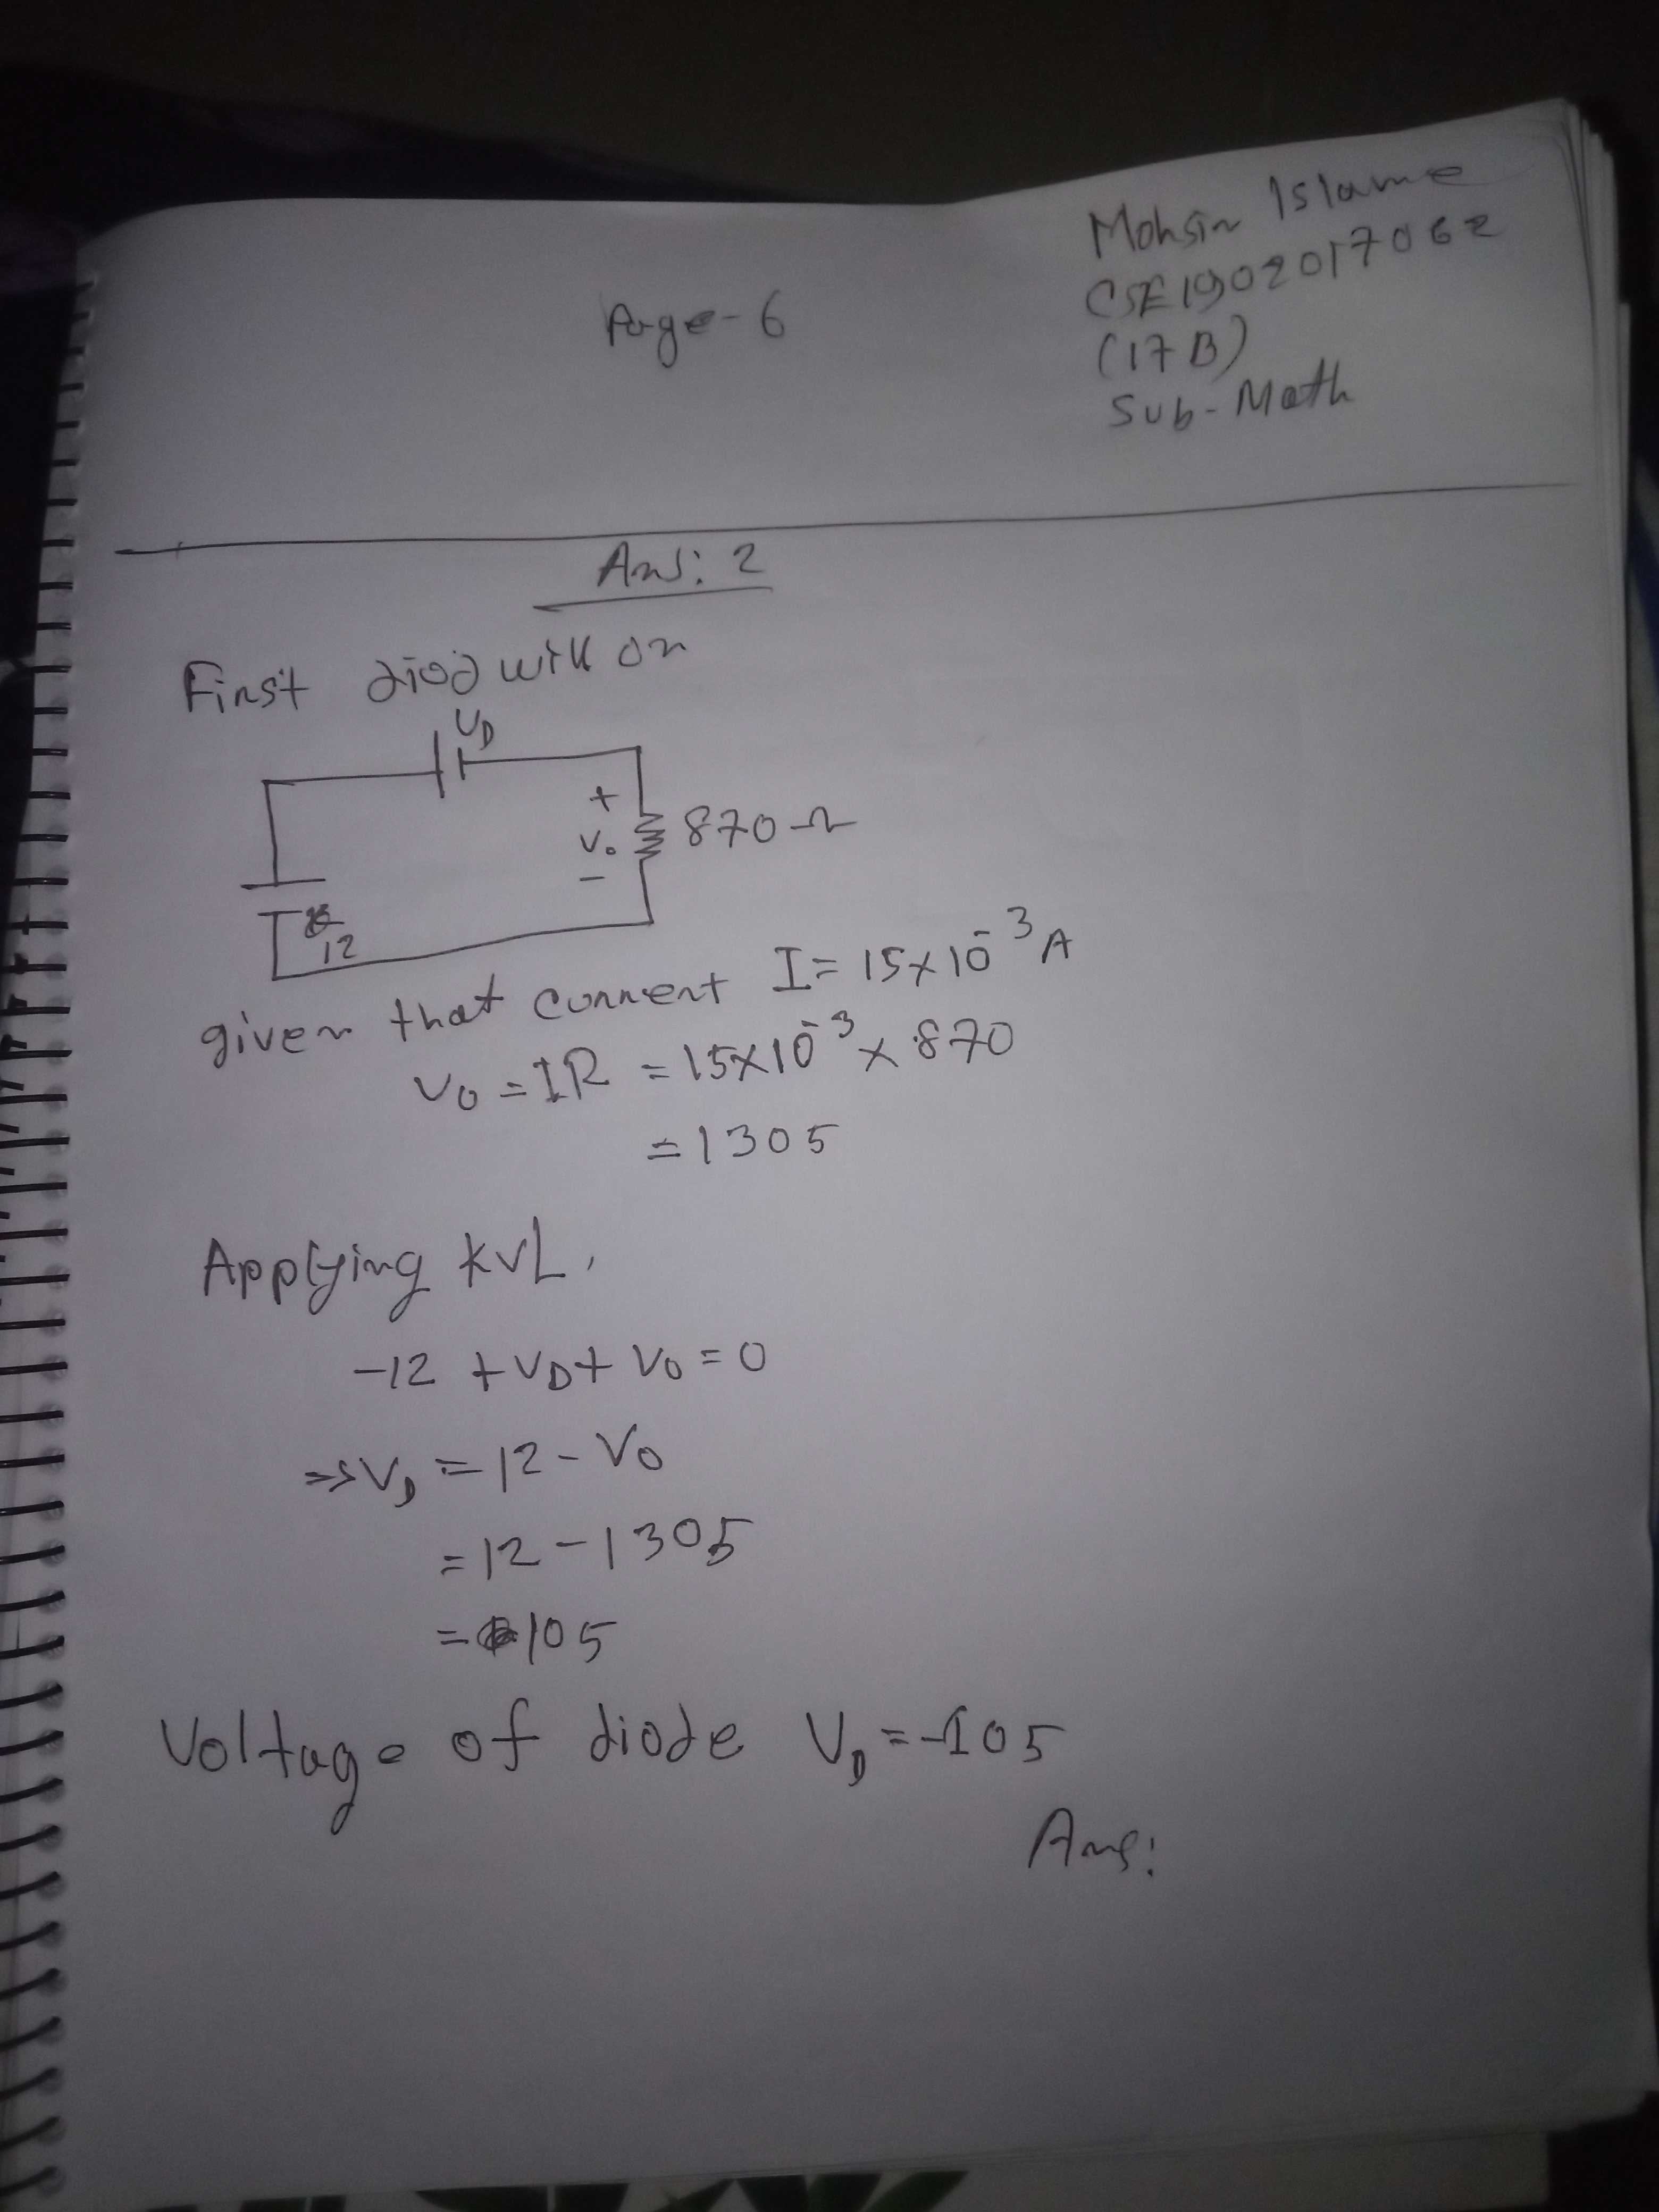 Page-6
Mohsin Islame
CSE1902017062
(17B)
Sub-Math
Ans: 2
First diod will on
VD
+
Vo
-
870Ω
12
given that current I = 15×10⁻³ A
Vo = IR = 15×10⁻³ × 870
= 1305
Applying KVL,
-12 + VD + Vo = 0
⇒ VD = 12 - Vo
= 12 - 1305
= 105
Voltage of diode VD = -105
Ans: